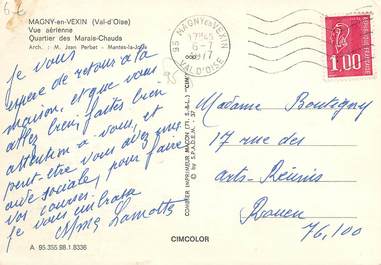 6 €
MAGNY-en-VEXIN (Val-d'Oise)
Vue aérienne
Quartier des Marais-Chauds
Arch. : M. Jean Perbet - Mantes-la-Jolie
95 MAGNY-EN-VEXIN
6-7
1977
VAL D'OISE
1,00
COMBIER IMPRIMEUR MACON (71. S.&L.) "CIM"
© by S.P.A.D.E.M.
Je vous
espère de retour à la
maison, et que vous
allez bien, faites bien
attention à vous, et
peut-être vous avez une
aide sociale, pour faire
vos courses.
je vous embrasse
Mme Lamotte
Madame Boutigny
17 rue des
arts-Réunis
Rouen
76,100
CIMCOLOR
A 95.355 98.1.8336